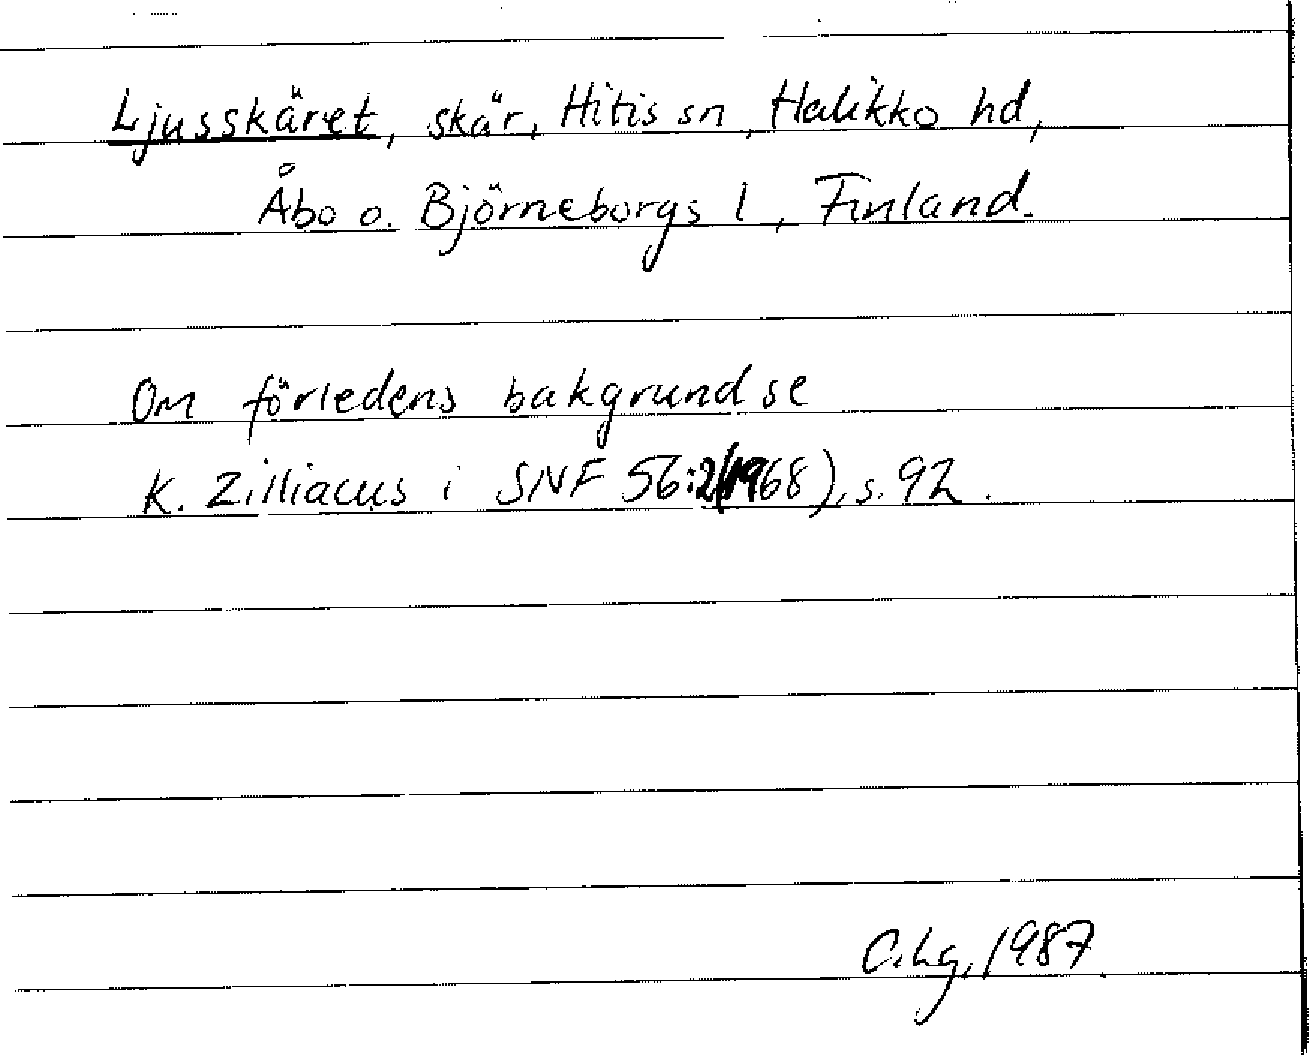 Ljusskäret, skär, Hitis sn, Halikko hd,
Åbo o. Björneborgs l, Finland.
Om förledens bakgrund se
K. Zilliacus i SNF 56:2(1968), s. 92.
C.Lg, 1987.